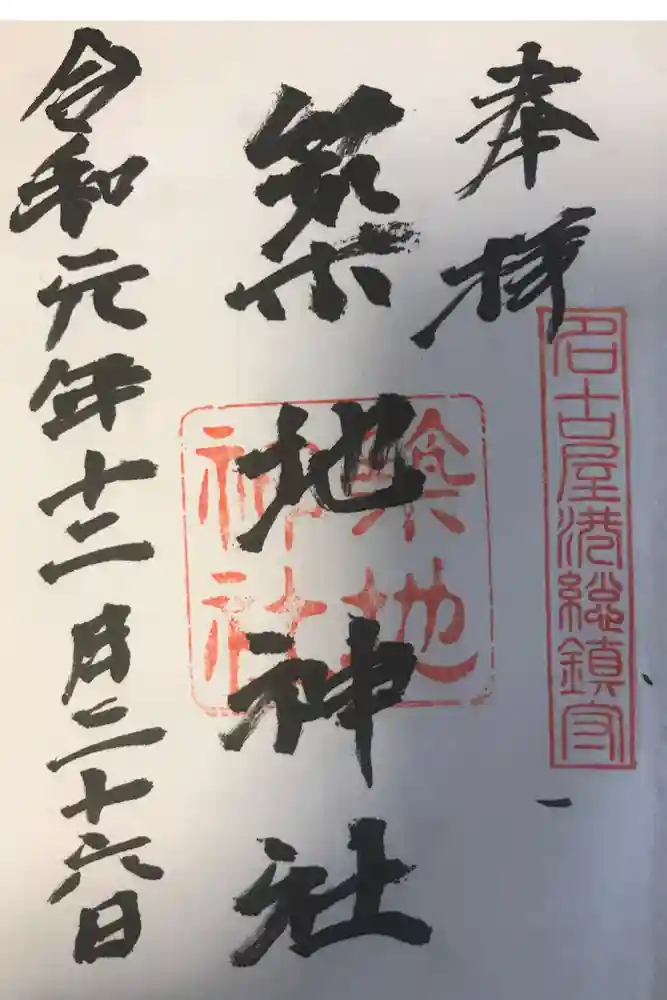 奉拝
名古屋港総鎮守
築地神社
築地
神社
令和元年十二月二十六日